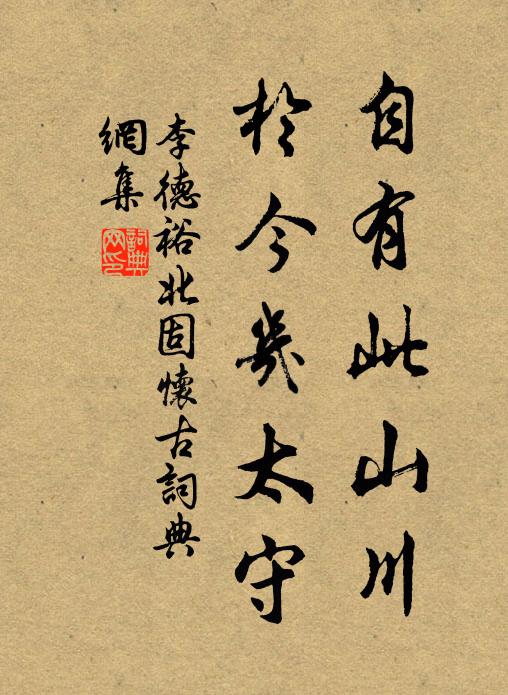 自有此山川
於今幾太守
李德裕北固懷古詞典
網集
詞典
網印